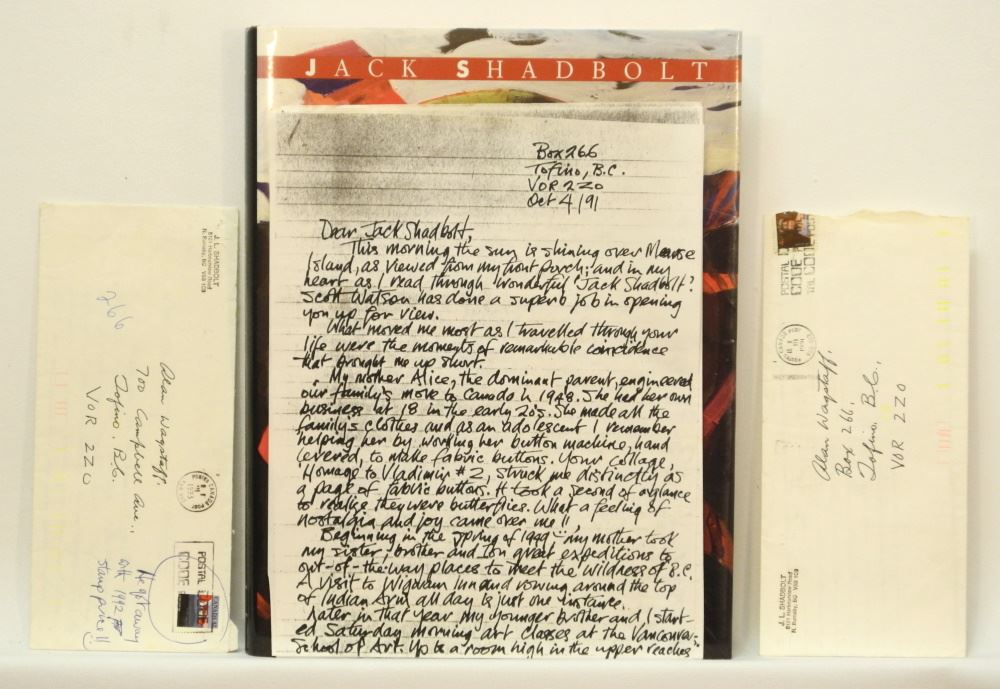 JACK SHADBOLT
Box 266
Tofino, B.C.
V0R 2Z0
Oct 4/91
Dear Jack Shadbolt,
This morning the sun is shining over Meares
Island, as viewed from my front porch; and in my
heart as I read through wonderful "Jack Shadbolt".
Scott Watson has done a superb job in opening
you up for view.
What moved me most as I travelled through your
life were the moments of remarkable coincidence
that brought me up short.
My mother Alice, the dominant parent, engineered
our family's move to Canada in 1948. She had her own
business at 18 in the early 20's. She made all the
family's clothes and as an adolescent I remember
helping her by working her button machine, hand
levered, to make fabric buttons. Your collage,
"Homage to Vladimir #2, struck me distinctly as
a page of fabric buttons. It took a second of a glance
to realize they were butterflies. What a feeling of
nostalgia and joy came over me!!
Beginning in the spring of 1949 - my mother took
my sister, brother and I on great expeditions to
out-of-the-way places to meet the wildness of B.C.
A visit to Wigwam Inn and rowing around the top
of Indian Arm all day is just one instance.
Later in that year my younger brother and I start-
ed Saturday morning art classes at the Vancouver
School of Art. Up to a room high in the upper reaches
J.L. SHADBOLT
N. Burnaby, BC V5B 1C9
266
Alan Wagstaff.
700 Campbell Ave.,
Tofino. B.C.
V0R 2Z0
CANADA POST
POSTAL
CODE
He got away
with 1992
stamp
POSTAL
CODE
CANADA POST
Alan Wagstaff.
Box 266.
Tofino. B.C.
V0R 2Z0
J.L. SHADBOLT
N. Burnaby, BC V5B 1C9